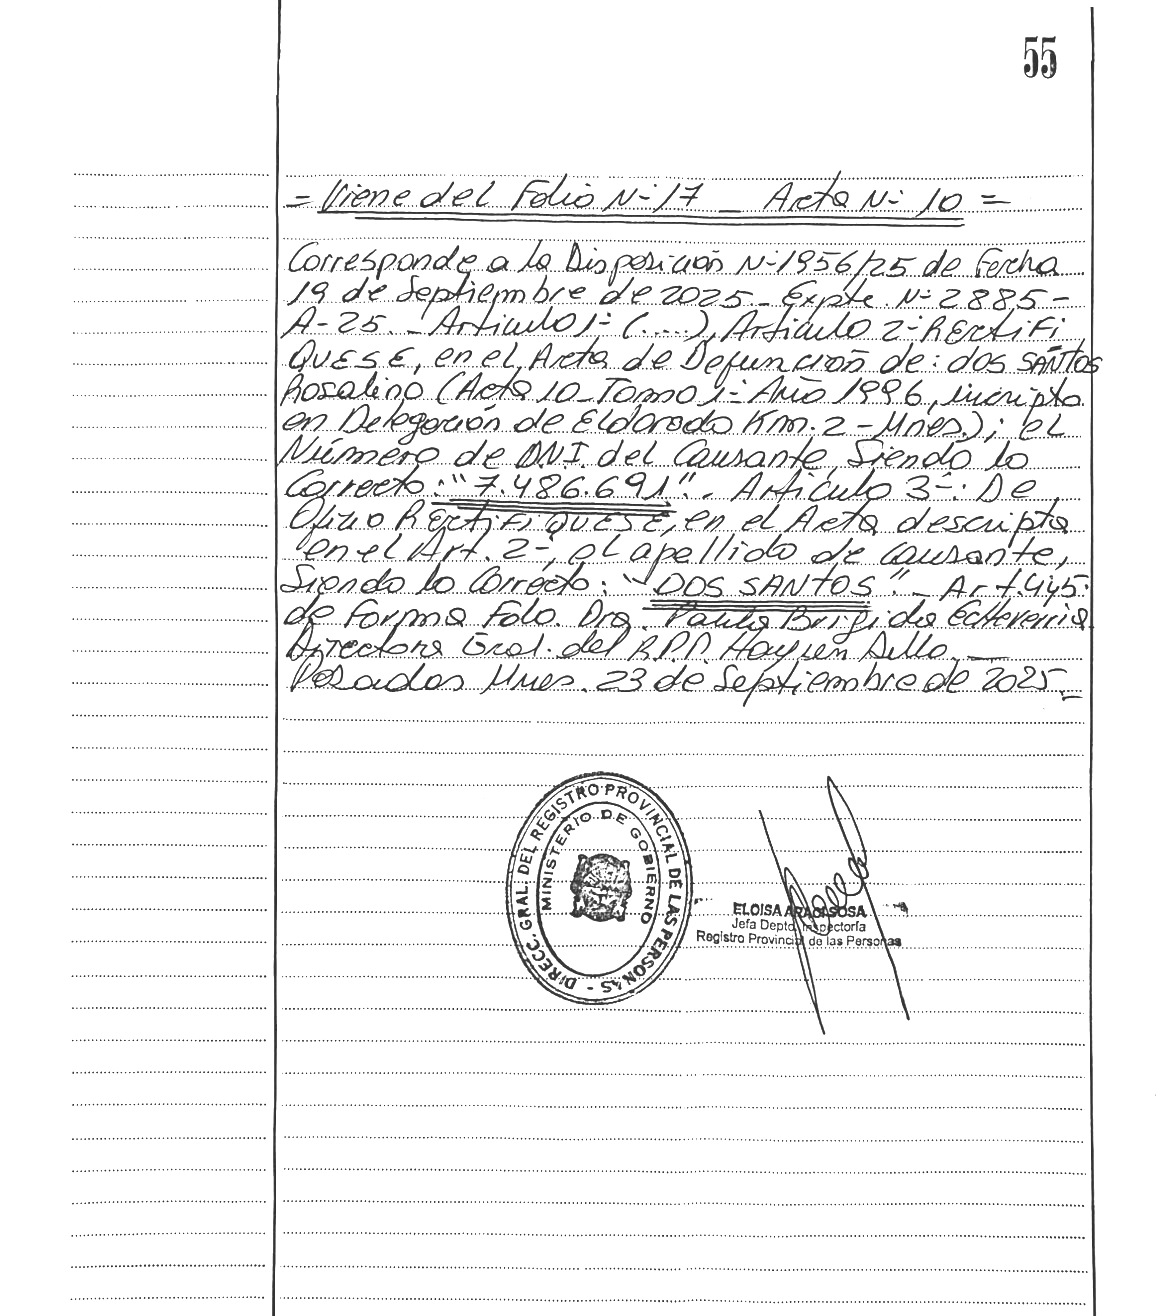 55
= Viene del Folio N- 17 _ Acta N- 10 =
Corresponde a la Disposición N-1956/25 de Fecha
19 de Septiembre de 2025_ Expte. N- 2885-
A-25._ Articulo 1- (....), Articulo 2- RECtiFi
QUESE, en el Acta de Defunción de: dos SANtos
Rosalino (Acta 10_Tomo 1- Año 1996, incripta
en Delegación de Eldorado Km. 2 - Mnes.); el
Número de D.N.I. del Causante Siendo lo
Correcto: "7.486.691". Articulo 3-: De
Oficio RECtiFiQUESE, en el Acta descripta
en el Art. 2-, el apellido de causante,
Siendo lo Correcto: "DOS SANtOS"._ Art.445.
de Forma Fdo. Dra. Paula Brigida Echeverria
Directora Gral. del R.P.P. Hay un Sello._
Posadas Mnes. 23 de Septiembre de 2025._
DIRECC. GRAL. DEL REGISTRO PROVINCIAL DE LAS PERSONAS -
MINISTERIO DE GOBIERNO
ELOISA SOSA
Jefa Depto. Inspectoría
Registro Provincial de las Personas